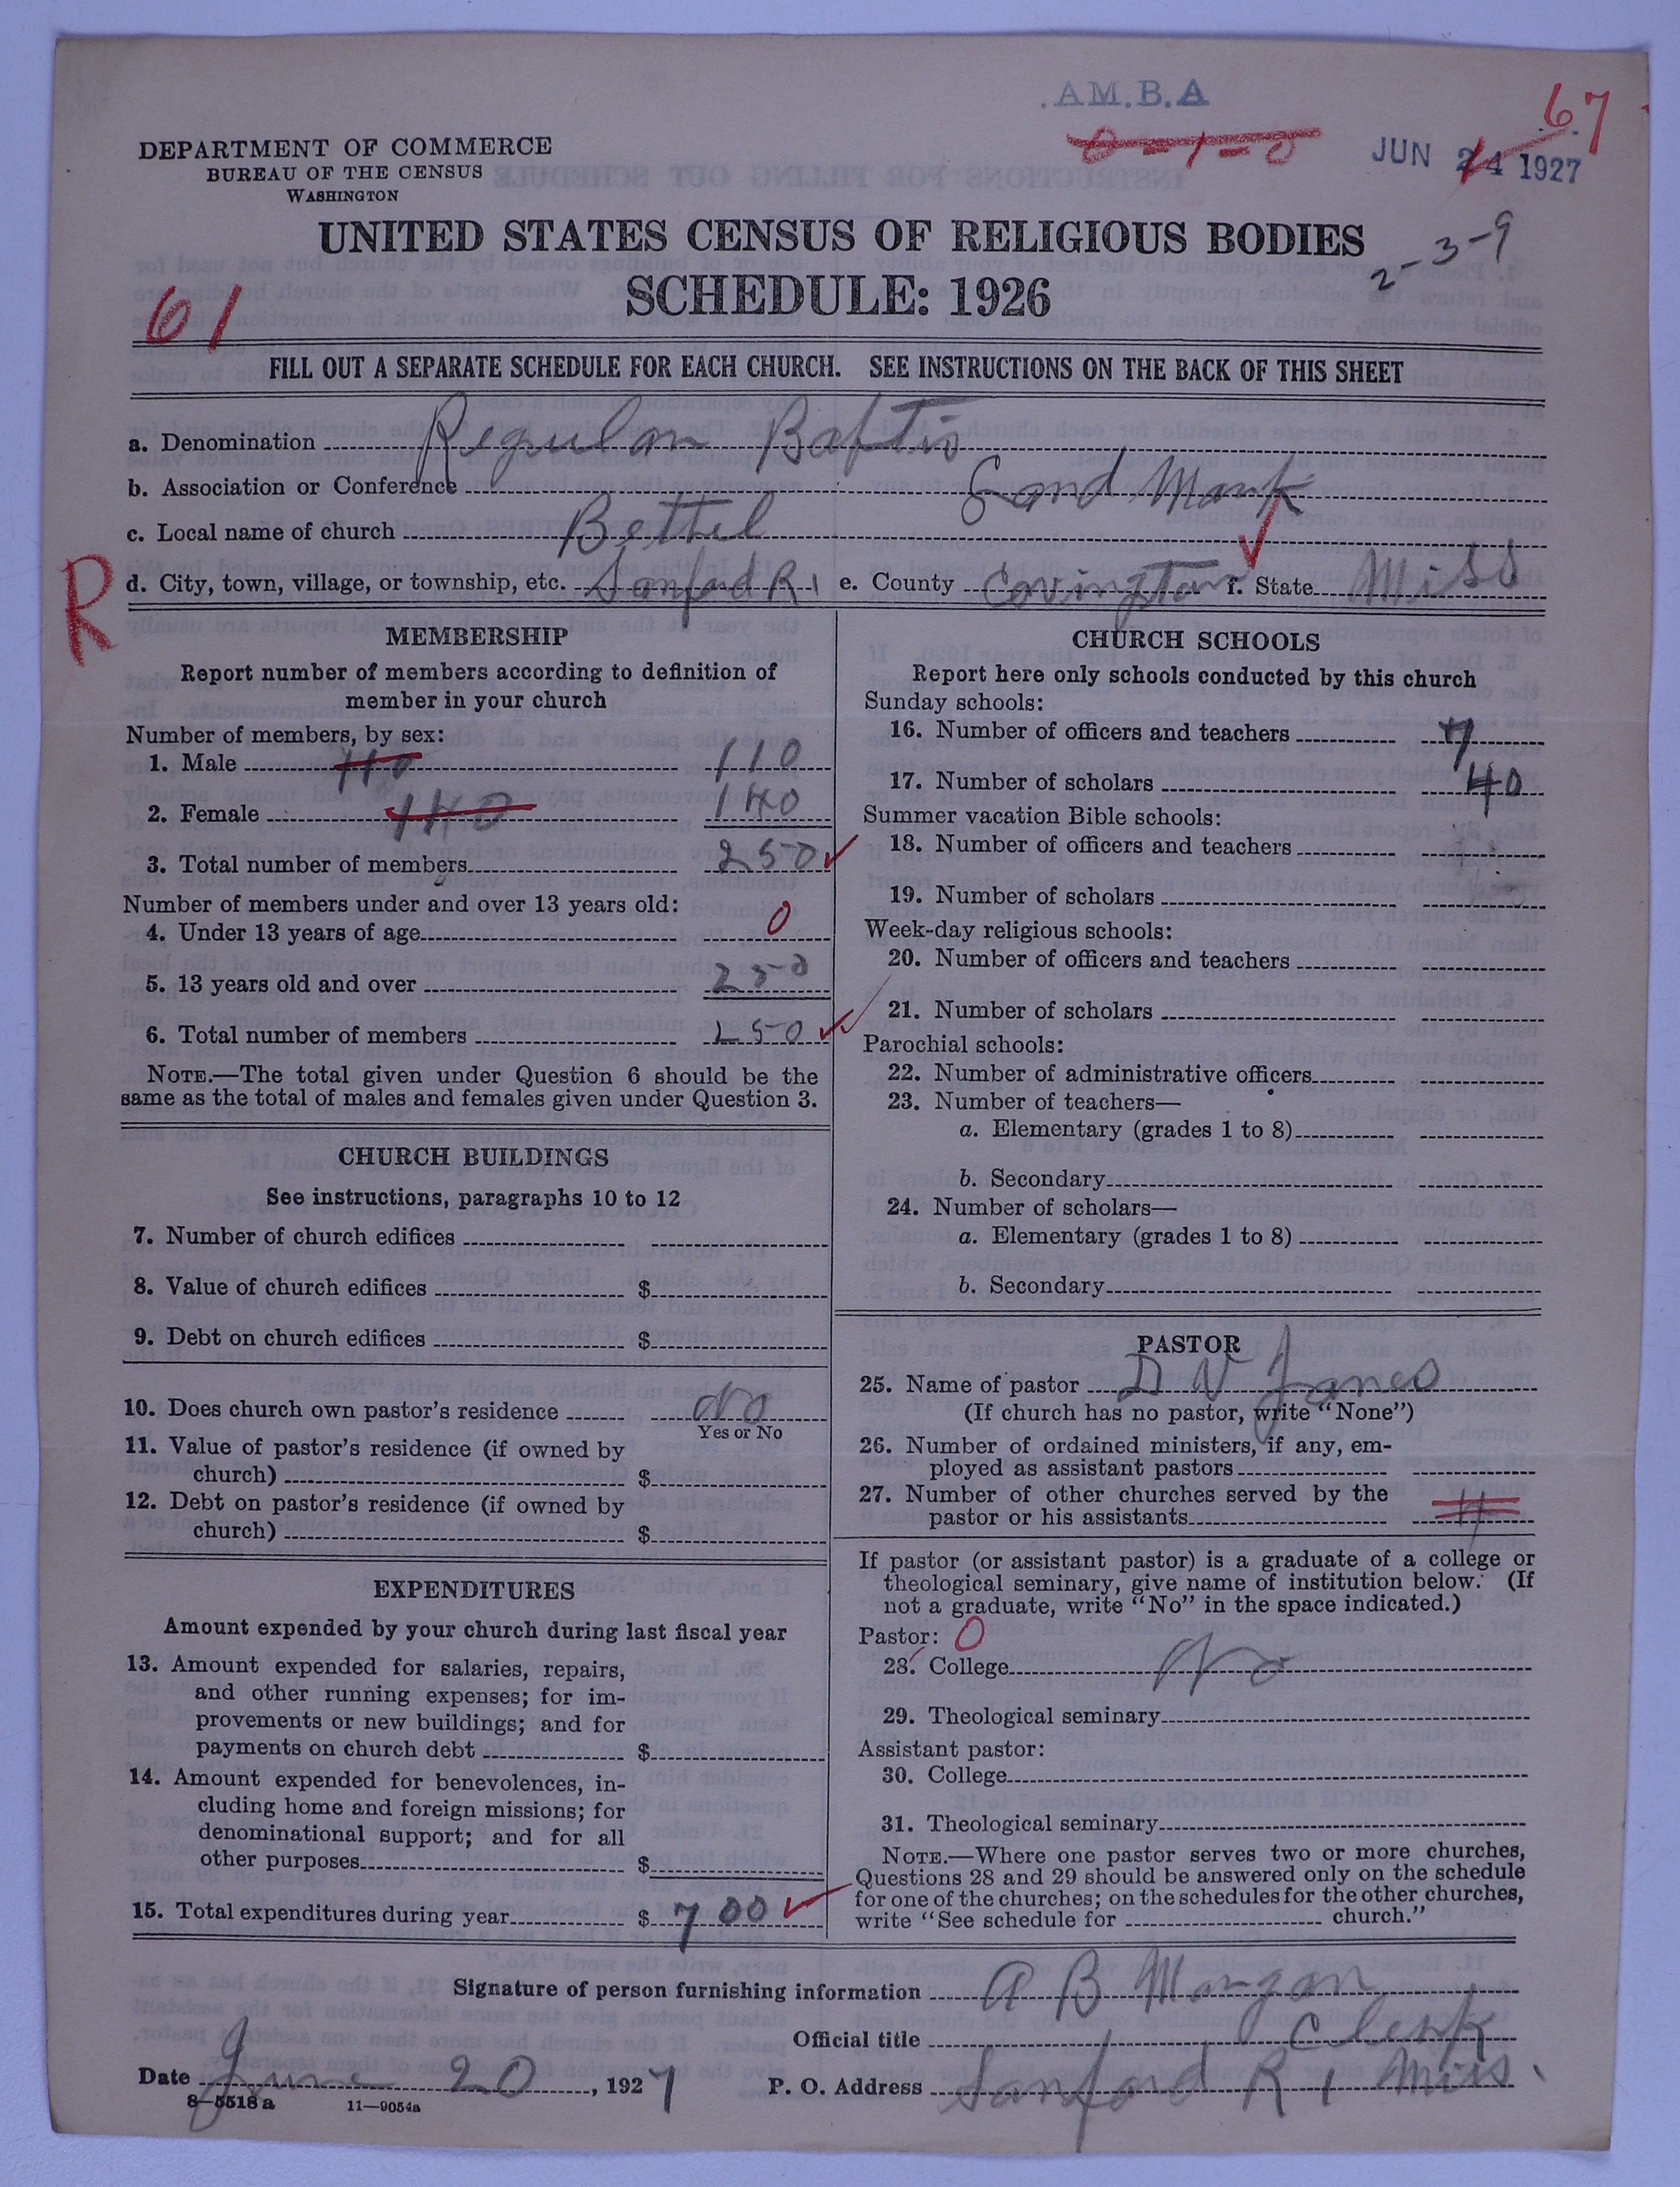 .AM.B.A
67
0-1-0
JUN 24 1927
DEPARTMENT OF COMMERCE
BUREAU OF THE CENSUS
WASHINGTON
UNITED STATES CENSUS OF RELIGIOUS BODIES
2-3-9
SCHEDULE: 1926
61
FILL OUT A SEPARATE SCHEDULE FOR EACH CHURCH. SEE INSTRUCTIONS ON THE BACK OF THIS SHEET
a. Denomination Regular Baptis
b. Association or Conference Land Mark
c. Local name of church Bethel
R
d. City, town, village, or township, etc. Sanford R 1 e. County Covington f. State Miss
MEMBERSHIP
Report number of members according to definition of
member in your church
Number of members, by sex:
1. Male 110 110
2. Female 140 140
3. Total number of members 250
Number of members under and over 13 years old:
4. Under 13 years of age 0
5. 13 years old and over 250
6. Total number of members 250
NOTE.—The total given under Question 6 should be the
same as the total of males and females given under Question 3.
CHURCH BUILDINGS
See instructions, paragraphs 10 to 12
7. Number of church edifices
8. Value of church edifices $
9. Debt on church edifices $
10. Does church own pastor's residence No
Yes or No
11. Value of pastor's residence (if owned by
church) $
12. Debt on pastor's residence (if owned by
church) $
EXPENDITURES
Amount expended by your church during last fiscal year
13. Amount expended for salaries, repairs,
and other running expenses; for im-
provements or new buildings; and for
payments on church debt $
14. Amount expended for benevolences, in-
cluding home and foreign missions; for
denominational support; and for all
other purposes $
15. Total expenditures during year $ 700
CHURCH SCHOOLS
Report here only schools conducted by this church
Sunday schools:
16. Number of officers and teachers 7
17. Number of scholars 40
Summer vacation Bible schools:
18. Number of officers and teachers
19. Number of scholars
Week-day religious schools:
20. Number of officers and teachers
21. Number of scholars
Parochial schools:
22. Number of administrative officers
23. Number of teachers—
a. Elementary (grades 1 to 8)
b. Secondary
24. Number of scholars—
a. Elementary (grades 1 to 8)
b. Secondary
PASTOR
25. Name of pastor D V Jones
(If church has no pastor, write "None")
26. Number of ordained ministers, if any, em-
ployed as assistant pastors
27. Number of other churches served by the
pastor or his assistants 4
If pastor (or assistant pastor) is a graduate of a college or
theological seminary, give name of institution below. (If
not a graduate, write "No" in the space indicated.)
Pastor: 0
28. College No
29. Theological seminary
Assistant pastor:
30. College
31. Theological seminary
NOTE.—Where one pastor serves two or more churches,
Questions 28 and 29 should be answered only on the schedule
for one of the churches; on the schedules for the other churches,
write "See schedule for church."
Signature of person furnishing information A B Mangan
Official title Clerk
Date June 20, 1927 P. O. Address Sanford R 1 Miss.
8—5518 a 11—9054a